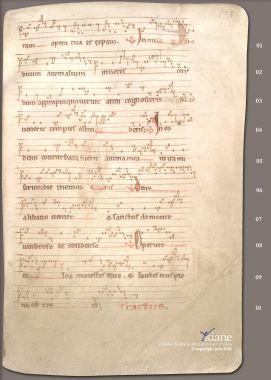 raui opera tua et expaui. In me
duum animalium innotes ceris
dum appropinquauerint anni cognosceris
uenerit tempus osten deris. In eo
dum conturbata fuerit anima mea in ira mi
sericordie memor eris. Deus
a libano ueniet et sanctus de monte
umbroso et condenso. Operuit
los maiestas eius et laudis eius ple
na est
01
02
03
04
05
06
07
08
09
10